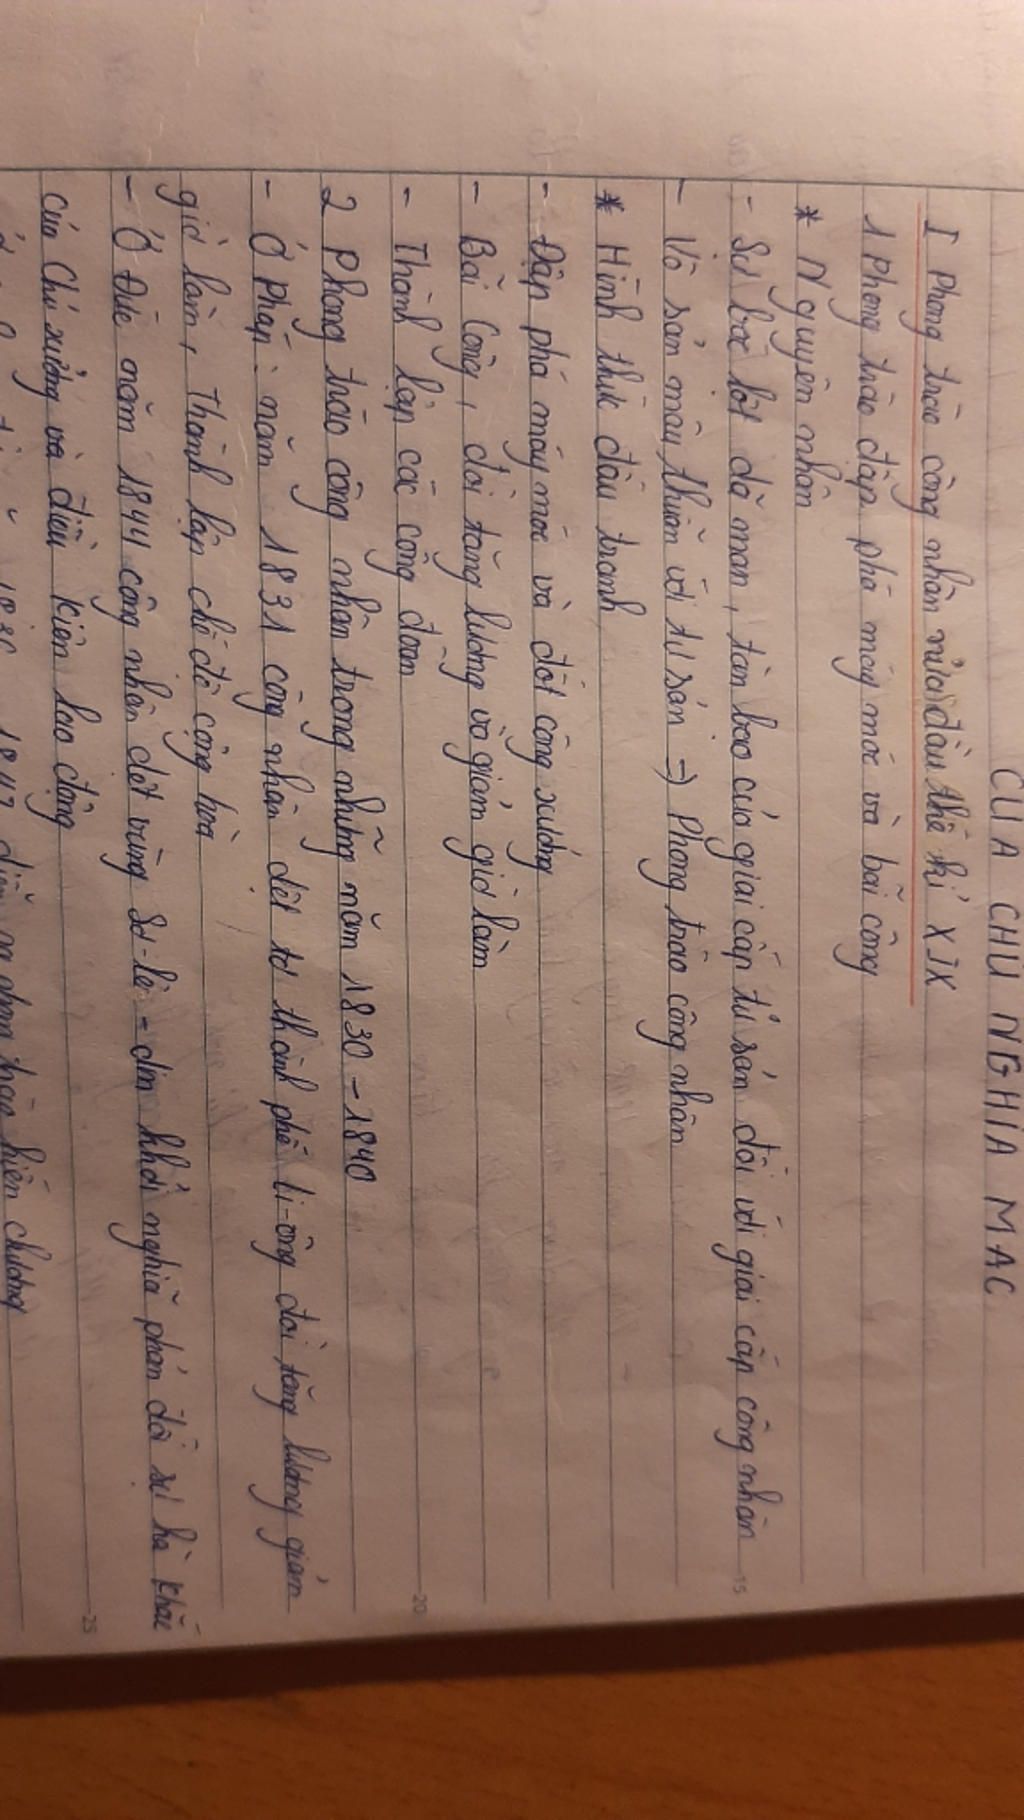 CỦA CHỦ NGHĨA MAC
I Phong trào công nhân nửa đầu thế kỉ XIX
1 Phong trào đập phá máy móc và bãi công
* Nguyên nhân
- Sự bóc lột dã man, tàn bạo của giai cấp tư sản đối với giai cấp công nhân
- Vô sản mâu thuẫn với tư sản => Phong trào công nhân
* Hình thức đấu tranh
- Đập phá máy móc và đốt công xưởng
- Bãi công, đòi tăng lương và giảm giờ làm
- Thành lập các công đoàn
2 Phong trào công nhân trong những năm 1830 - 1840
- Ở Pháp: năm 1831 công nhân dệt tơ thành phố Li-ông đòi tăng lương giảm
giờ làm, Thành lập chế độ cộng hòa
- Ở Đức năm 1844 công nhân dệt vùng Sơ-lê-din khởi nghĩa phản đối sự hà khắc
của Chủ xưởng và điều kiện lao động
1836 1847 diễn ra phong trào hiến chương
15
20
25